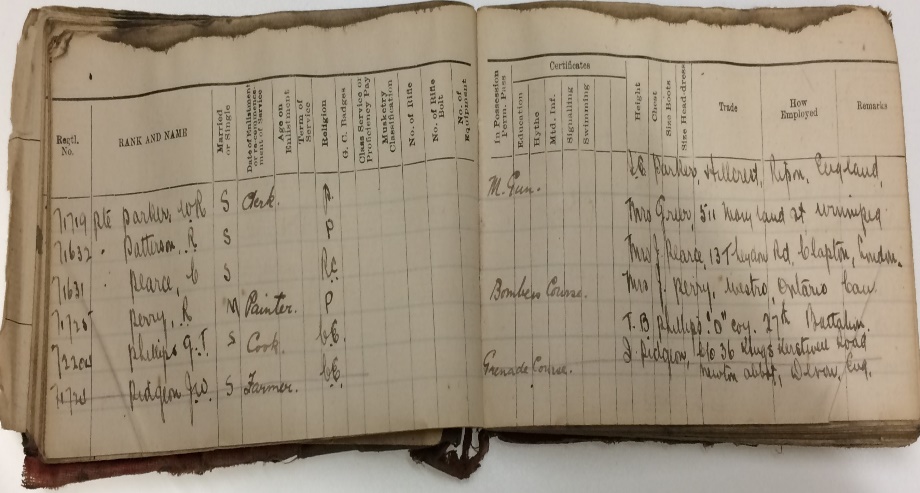 Regtl. No. RANK AND NAME Married or Single Date of Enlistment or re-commencement of Service Age on Enlistment Term of Service Religion G. C. Badges Class Service or Proficiency Pay Musketry Classification No. of Rifle No. of Rifle Bolt No. of Equipment
71719 Pte Parker, W R S Clerk. P
71632 " Patterson, R S P
71631 " Pearce, C S Rc
71725 Perry, R M Painter. P
Phillips G.T. S Cook. CE
Pidgeon J.W. S Farmer. CE
Certificates
In Possession Perm. Pass Education Hythe Mtd. Inf. Signalling Swimming Height Chest Size Boots Size Head-dress Trade How Employed Remarks
M. Gun. Parker, Hillcrest, Ripon, England,
Mrs Greer, 511 Maryland St Winnipeg
Mrs J Pearce, 13 Rd, Clapton, London.
Bombers Course. Mrs J. Perry, Ontario Can.
T. B Phillips "D" coy. 27th Battalion.
Grenade Course. J. Pidgeon, C/o 36 Kings Road
Newton Abbot, Devon, Eng.